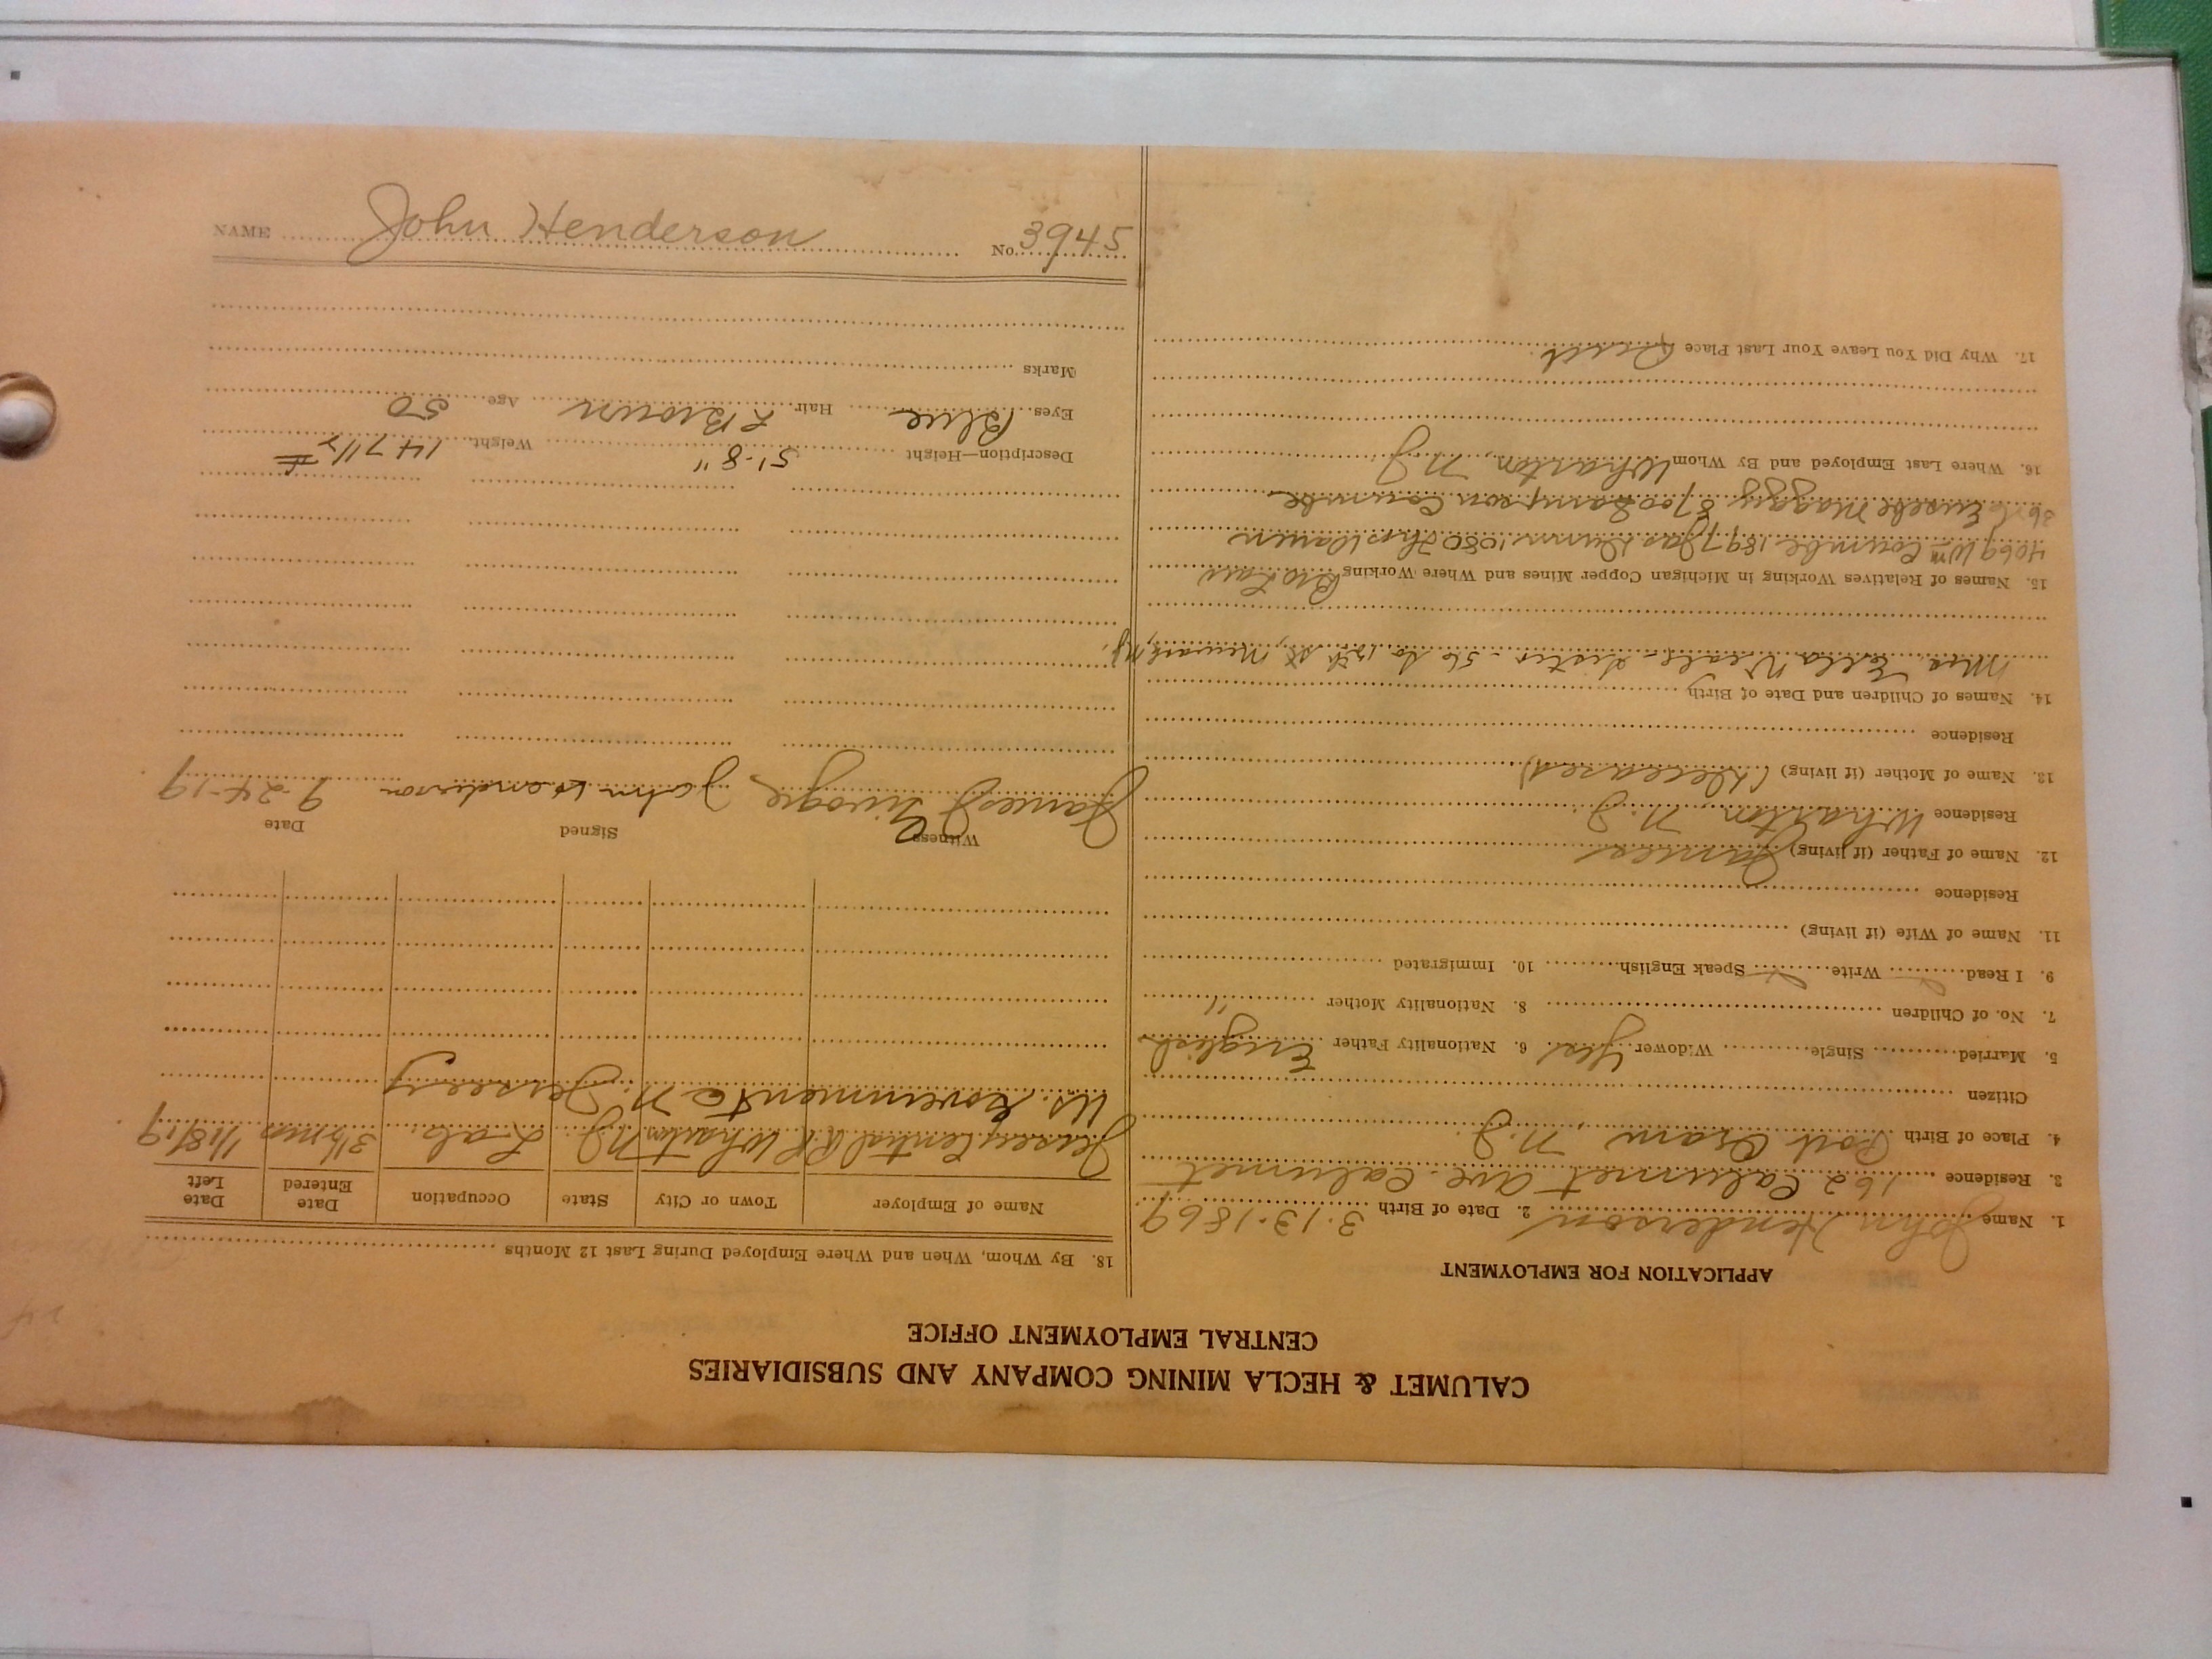 CALUMET & HECLA MINING COMPANY AND SUBSIDIARIES
CENTRAL EMPLOYMENT OFFICE
APPLICATION FOR EMPLOYMENT
1. Name John Henderson 2. Date of Birth 3.13.1869
3. Residence 162 Calumet ave. Calumet
4. Place of Birth Port Oram, N.J.
Citizen
5. Married Single Widower Yes 6. Nationality Father English
7. No. of Children 8. Nationality Mother "
9. I Read Write Speak English 10. Immigrated
11. Name of Wife (if living)
Residence
12. Name of Father (if living) James
Residence Wharton, N.J.
13. Name of Mother (if living) (Deceased)
Residence
14. Names of Children and Date of Birth
Mrs. Ella Neale - Sister - 56 So 12th St Newark NJ.
15. Names of Relatives Working in Michigan Copper Mines and Where Working Bro Laws
4069 Wm Coumbe 1897 Jas Dunn 1080 Thos
Eusebe Maggy 8700 Sampson Coumbe
16. Where Last Employed and By Whom Wharton, N.J.
17. Why Did You Leave Your Last Place Quit.
18. By Whom, When and Where Employed During Last 12 Months
Name of Employer Town or City State Occupation Date Entered Date Left
Jersey Central R.R Wharton NJ. Lab. 3½ mos 1/18/19
U.S. Government @ N. Jersey
Witness Signed Date
James Givogre John Henderson 9-24-19
Description—Height 5'-8" Weight 147½ #
Eyes Blue Hair L Brown Age 50
Marks
NAME John Henderson No. 3945